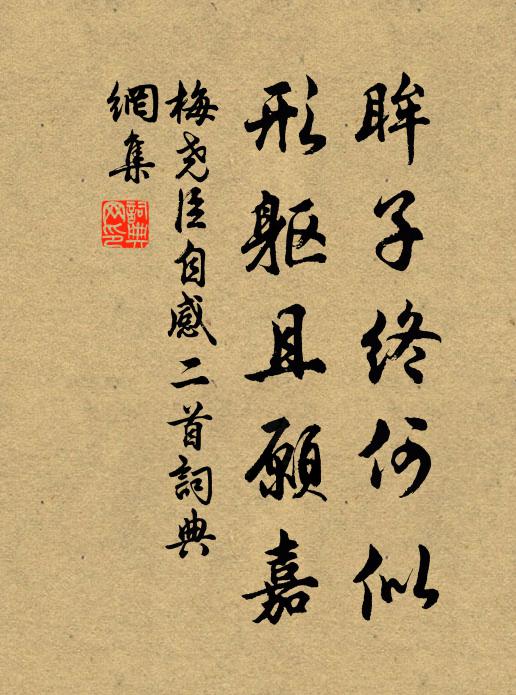 眸子终何似
形躯且願嘉
梅尧臣自感二首詞典
網集
詞典
网印